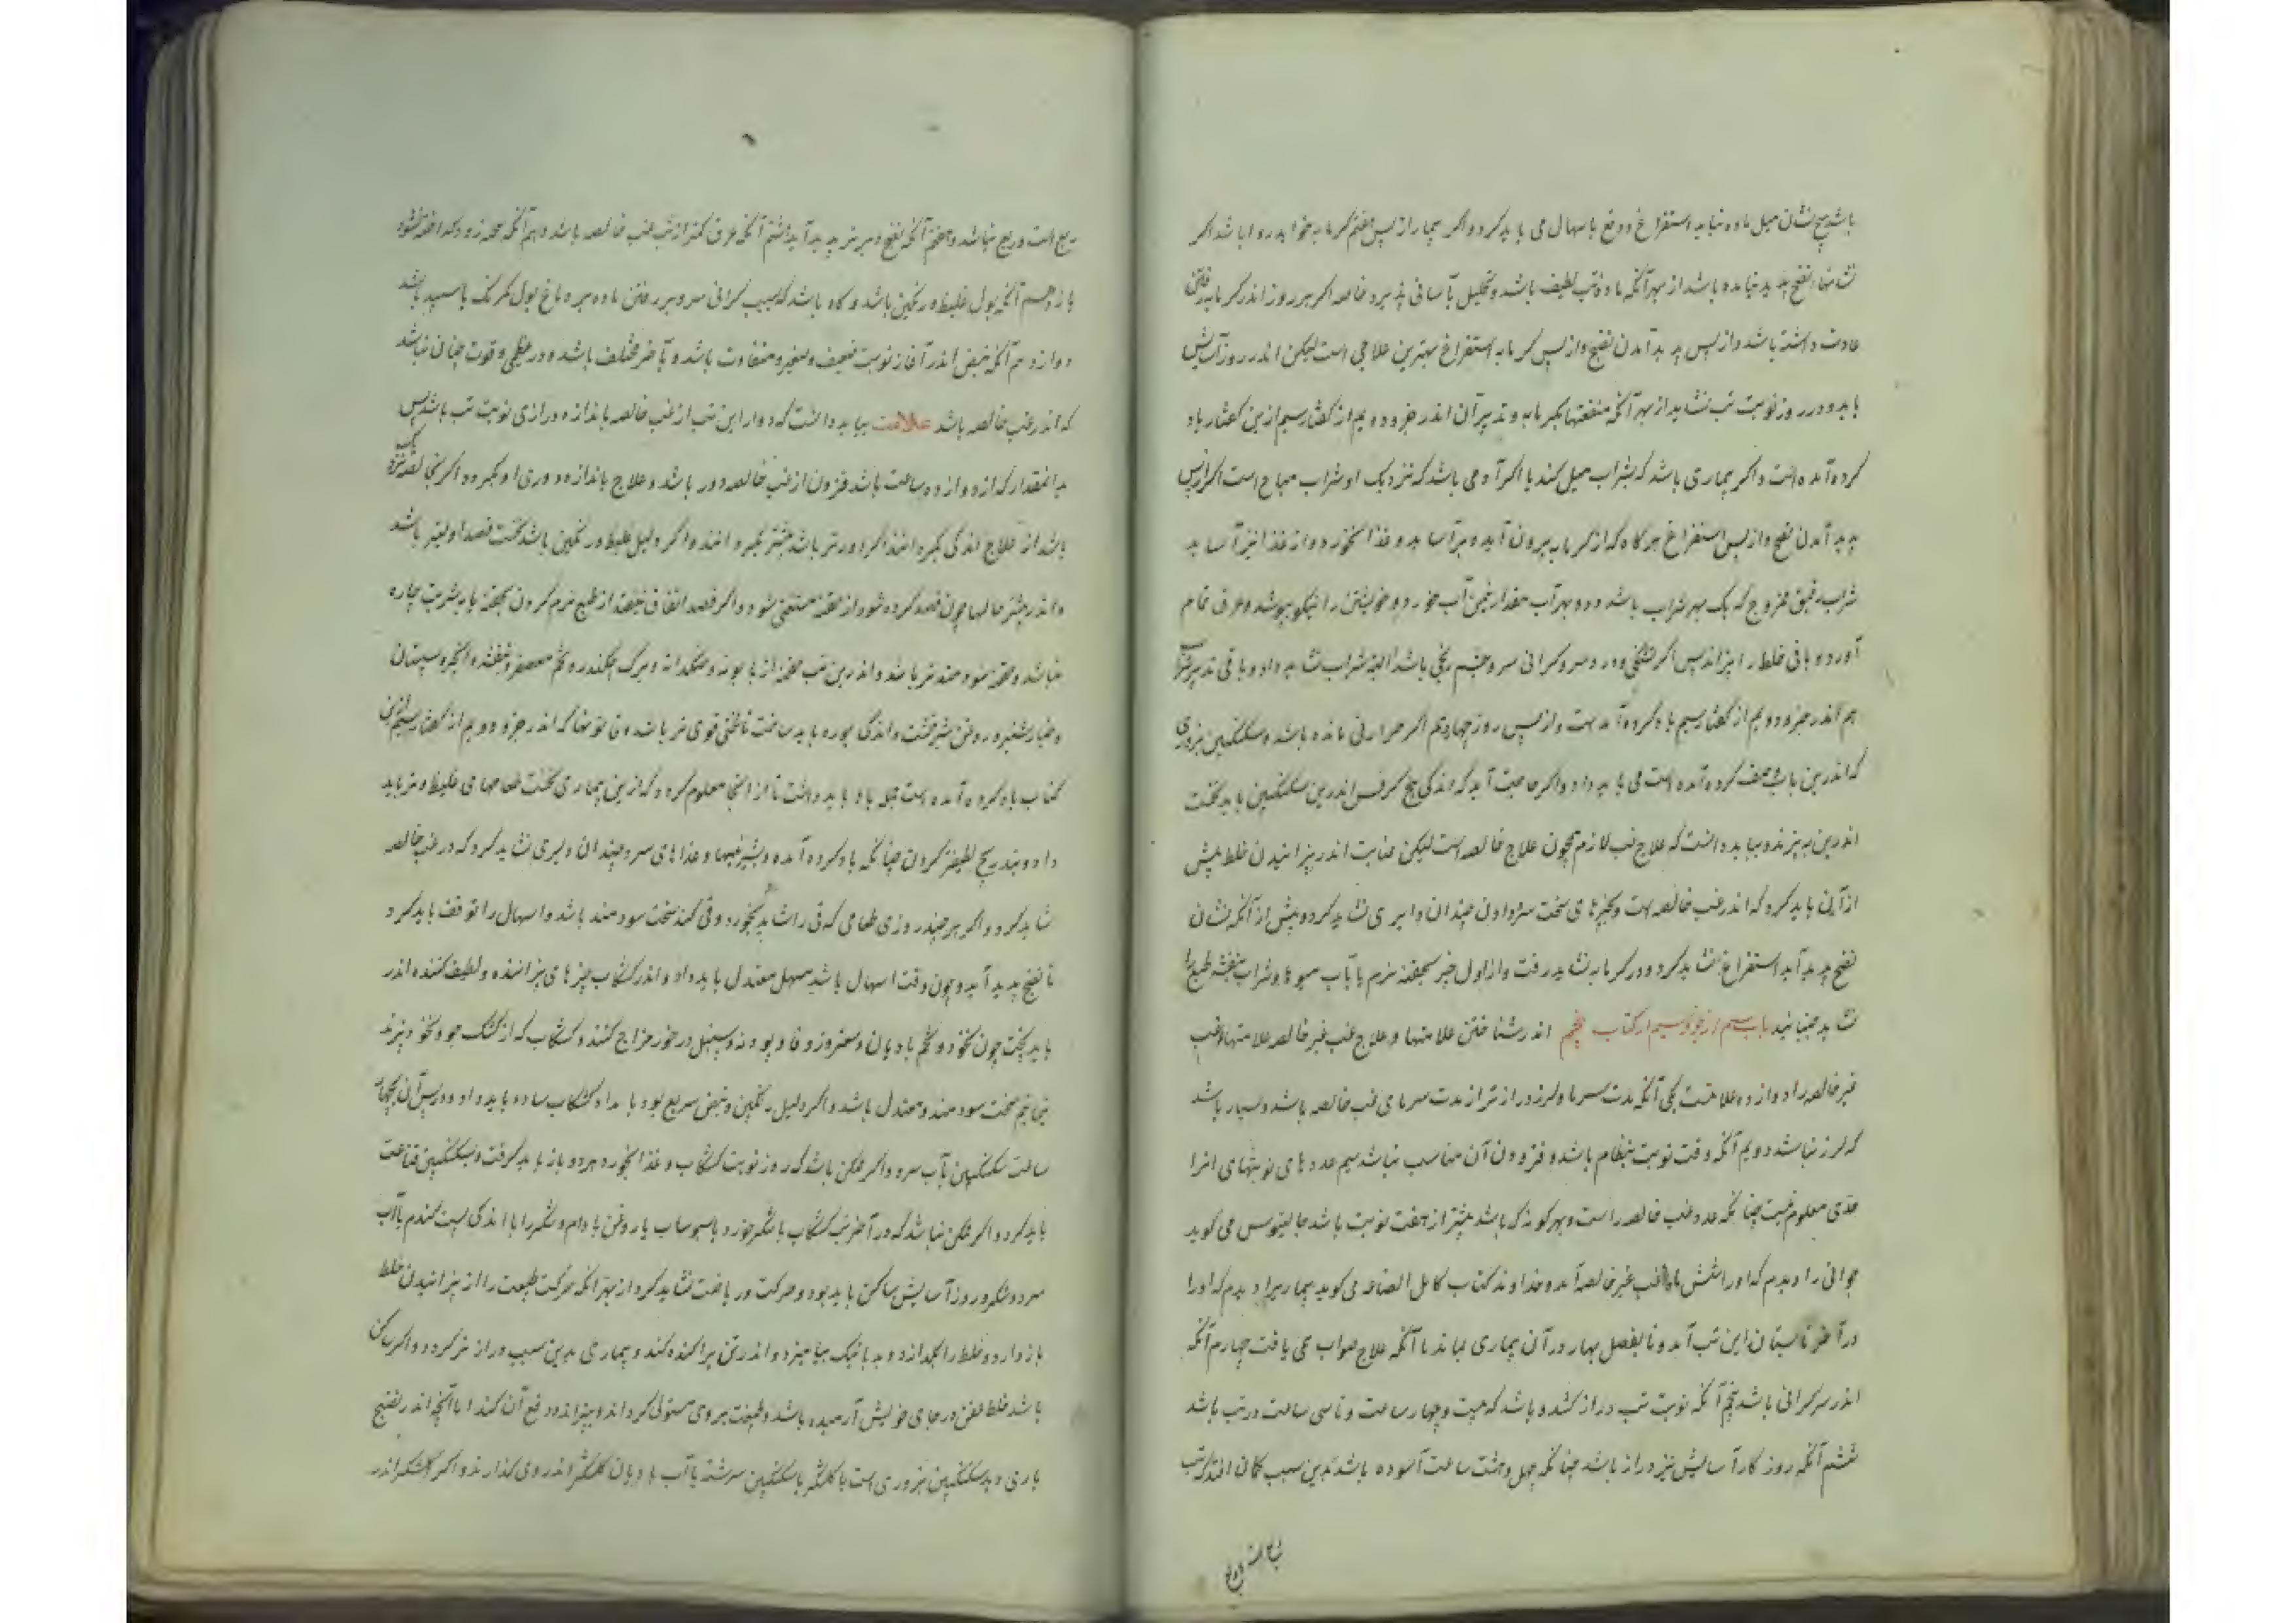 باشد هیچ نشان میل ماده نیاید استفراغ و دفع باسهال می باید کرد و اگر بیمار از پس هفتم گرمابه خواهد روا باشد اگر
نشانهاء نضج پدید نیامده باشد از بهر آنکه ماده تب لطیف باشد و تحلیل بآسانی پذیرد خاصه اگر هر روز اندر گرمابه رفتن
عادت داشته باشد و از پس پدید آمدن نضج و از پس گرمابه استفراغ بهترین علاجی است لیکن اندر روز آسایش
باید و در روز نوبت تب نشاید از بهر آنکه منفعتهاء گرمابه و تدبیر آن اندر جزو دویم از گفتار سیم ازین گفتار یاد
کرده آمده است و اگر بیماری باشد که بشراب میل کند یا اگر آدمی باشد که نزدیک او شراب مباح است اگر از پس
پدید آمدن نضج و از پس استفراغ هرگاه که از گرمابه بیرون آید و برآساید و غذا بخورد و از غذا نیز آساید
شراب رقیق ممزوج که یک بهر شراب باشد و دو بهر آب مقدار نیمن آب خورد و خویشتن را نیکو بپوشد و عرق تمام
آورد و باقی خلط را بپزاند پس اگر تشنگی و درد سر و گرانی سر و چشم رنجی باشد البته شراب نشاید داد و باقی تدبیر
هم اندر جزو دویم از گفتار سیم یاد کرده آمدست و از پس روز چهاردهم اگر حرارتی مانده باشد سکنگبین بزوری
که اندرین باب صفت کرده آمده است می باید داد و اگر حاجت آید که اندکی بیخ کرفس اندرین سکنگبین باید پخت
اندرین بپزند و بباید دانست که علاج غب لازم همچون علاج خالصه است لیکن عنایت اندر پزانیدن خلط بیش
از آن باید کرد که اندر غب خالصه است و چیزهای سخت سرد دادن چندان دلیری نشاید کرد و پیش از آنکه نشان
نضج پدید آید استفراغ نشاید کرد و در گرمابه نشاید رفت و از اول جز بحقنه نرم یا بآب میوها و شراب بنفشه طبع را
نشاید جنبانید باب سیم از جزو سیم از کتاب پنجم اندر شناختن علامتها و علاج غب غیر خالصه علامتهاء غب
غیر خالصه را دوازده علامتست یکی آنکه مدت سرما و لرز دراز تر از مدت سرمای غب خالصه باشد و بسیار باشد
که لرز نباشد دویم آنکه وقت نوبت بنظام باشد و فزودن آن مناسب نباشد سیم عددهای نوبتهای انرا
حدی معلوم نیست چنانکه عدد غب خالصه راست و بهر گونه که باشد بیشتر از هفت نوبت باشد جالینوس می گوید
جوانی را دیدم که او را شش ماه غب غیر خالصه آمد و خداوند کتاب کامل الصناعه می گوید بیماریرا دیدم که او را
در آخر تابستان این تب آمد و تا بفصل بهار در آن بیماری بماند با آنکه علاج صواب می یافت چهارم آنکه
اندر سر گرانی باشد پنجم آنکه نوبت تب دراز کشد و باشد که بیست و چهار ساعت و تا سی ساعت در تب باشد
ششم آنکه روزگار آسایش نیز دراز باشد چنانکه چهل و هشت ساعت آسوده باشد بدین سبب گمان افتد که تب
ربع است و ربع نباشد و هفتم آنکه نضج دیر تر پدید آید هشتم آنکه عرق کمتر از تب غب خالصه باشد دهم آنکه سحنه زود گداخته نشود
یازدهم آنکه بول غلیظ و رنگین باشد و گاه باشد که بسبب گرانی سر و بر رفتن ماده بر دماغ بول کم رنگ یا سپید باشد
دوازدهم آنکه نبض اندر آغاز نوبت ضعیف و صغیر و متفاوت باشد و بآخر مختلف باشد و در عظیمی و قوت چنان نباشد
که اندر غب خالصه باشد علامت بباید دانست که دوار این تب از غب خالصه باندازه درازی نوبت تب باشد پس
بدانمقدار که از دوازده ساعت باشد فزون از غب خالصه دور باشد و علاج باندازه دوری او بگردد اگر بخالصه نزدیک
باشد از علاج اندکی بگرداند اگر دور تر باشد بیشتر بگرداند و اگر دلیل غلیظ و رنگین باشد نخست فصد اولیتر باشد
و اندر بیشتر حالها چون فصد کرده شود از حقنه مستغنی شود و اگر فصد اتفاق نیفتد از طبع نرم کردن بحقنه یا بشربت چاره
نباشد و حقنه سودمند تر باشد و اندرین تب حقنه از بابونه و خسکدانه و برگ چکندر و تخم معصفر و بنفشه و انجیر و سپستان
و خیارشنبر و روغن شیرپخت و اندکی بوره باید ساخت تا لختی قوی تر باشد و قانونها که اندر جزو دویم از گفتار سیم ازین
کتاب یاد کرده آمده است بجمله یاد باید داشت تا از انجا معلوم گردد که ازین بیماری نخست طعامهای غلیظ و تر باید
داد و بتدریج لطیفتر کردن چنانکه یاد کرده آمده و بشربتها و غذاهای سرد چندان دلیری نشاید کرد که در غب خالصه
شاید کرد و اگر هر چند روزی طعامی که قی را شاید بخورد و قی کند سخت سودمند باشد و اسهال را توقف باید کرد
تا نضج پدید آید و چون وقت اسهال باشد مسهل معتدل باید داد و اندر کشکاب چیزهای پزاننده و لطیف کننده اندر
باید پخت چون نخود و تخم بادیان و سعتر و زوفا و پودنه و سنبل در خور مزاج کنند و کشکاب که از کشک جو و نخود پزند
نیمانیم سخت سودمند و معتدل باشد و اگر دلیل رنگین و نبض سریع بود بامداد کشکاب ساده باید داد و در پس آن بچهار
ساعت سکنگبین بآب سرد و اگر ممکن باشد که روز نوبت کشکاب و غذا نخورد هر دو باز باید گرفت و بسکنگبین قناعت
باید کرد و اگر ممکن نباشد که در آخر تب کشکاب باشکر خورد یا سبوساب یا روغن بادام و شکر را با اندکی پست گندم بآب
سرد و شکر و روز آسایش ساکن باید بود و حرکت و ریاضت نشاید کرد از بهر آنکه حرکت طبیعت را از پزانیدن خلط
باز دارد و خلط را بگدازد و بد با نیک بیامیزد و اندر تن پراکنده کند و بیماری بدین سبب دراز تر گردد و اگر ساکن
باشد خلط عفن در جای خویش آرمیده باشد و طبیعت بر وی مستولی گردد و بپزاند و دفع آن کند اما آنچه اندر نضج
یاری دهد سکنگبین بزوری است یا گلشکر با سکنگبین سرشته یا آب بادیان گلشکر اندر وی گذارند و اگر گلشکر اندر